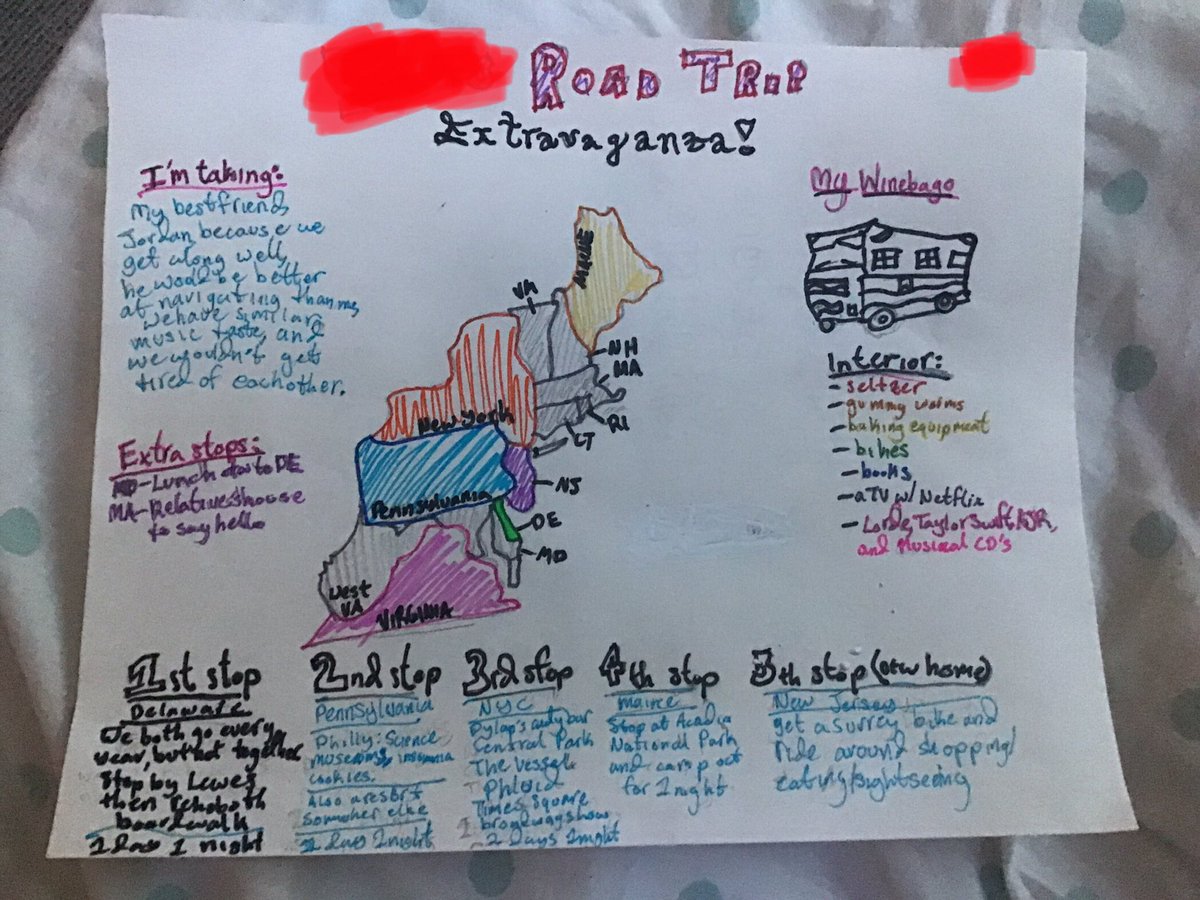 ROAD TRIP
Extravaganza!
I'm taking:
My bestfriend,
Jordan, because we
get along well,
he would be better
at navigating than me,
we have similar
music taste, and
we wouldn't get
tired of eachother.
Extra stops:
MD-Lunch on way to DE
MA-Relatives house
to say hello
MAINE
NH
MA
RI
CT
New York
NJ
Pennsylvania
DE
MD
West
VA
VIRGINIA
My Winebago
Interior:
- seltzer
- gummy worms
- baking equipment
- bikes
- books
- a TV w/ Netflix
- Lorde, Taylor Swift, AJR,
and Musical CD's
1st stop
Delaware
We both go every
year, but not together
Stop by Lewes
then Rehoboth
boardwalk
1 night
2nd stop
Pennsylvania
Philly: Science
museum, insomnia
cookies.
Also a rest
2nd stop
3rd stop
NYC
Dylan's candy bar
Central Park
The Vessel
Times Square
broadway show
2 days 1 night
4th stop
Maine
Stop at Acadia
National Park
and camp out
for 1 night
5th stop (otw home)
New Jersey
get a surrey bike and
ride around shopping/
eating/sightseeing